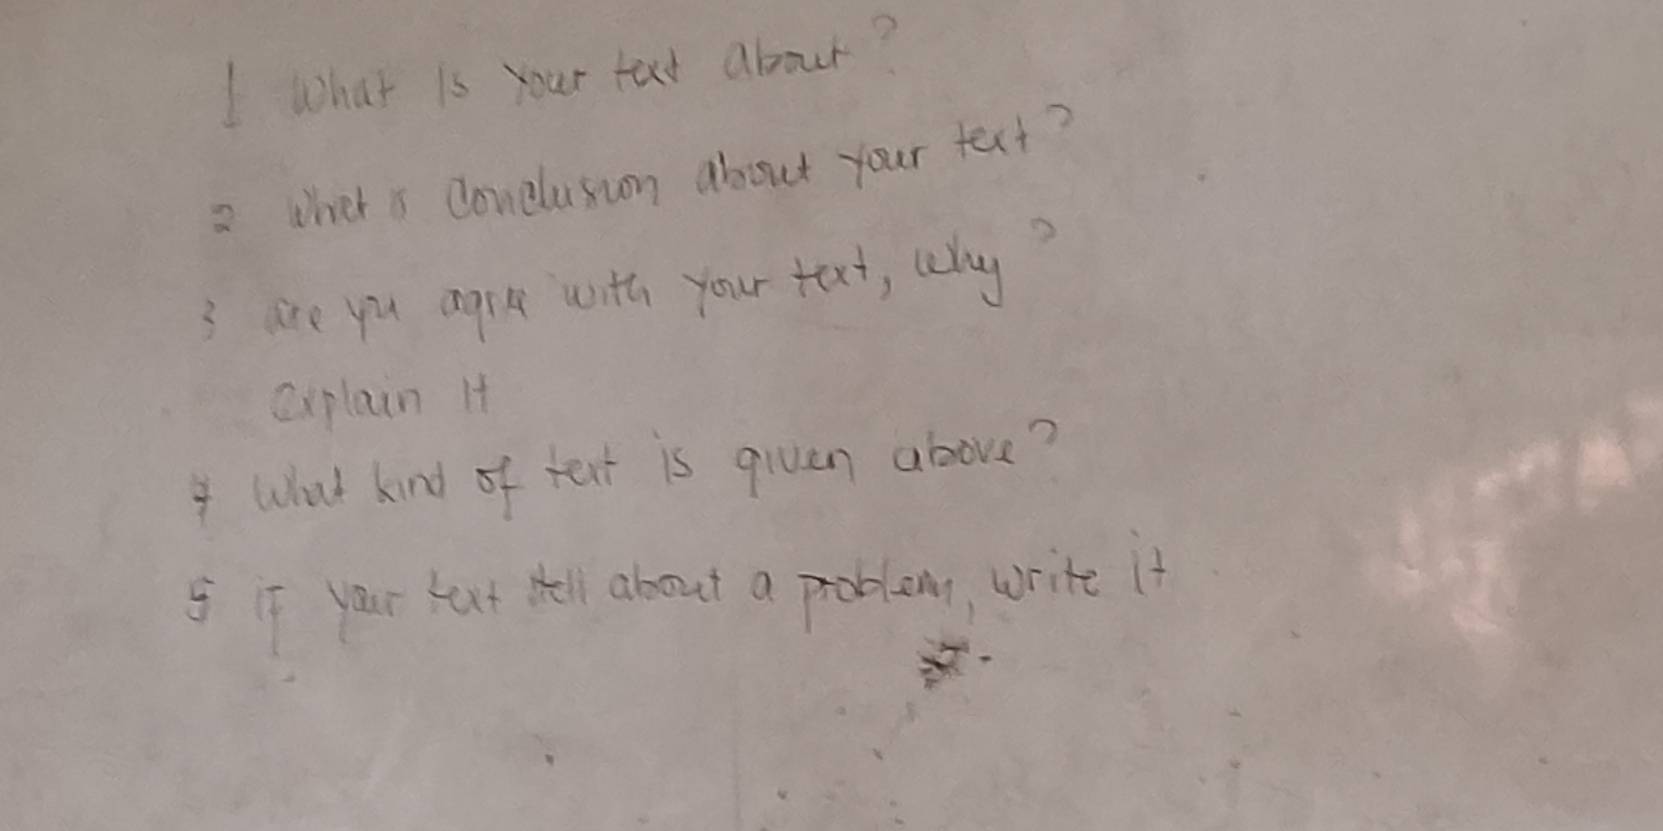 1 What is your text about?
2 What is Conclusion about your text?
3 are you agree with your text, why?
Explain it
4 What kind of text is given above?
5 if your text tell about a problem, write it